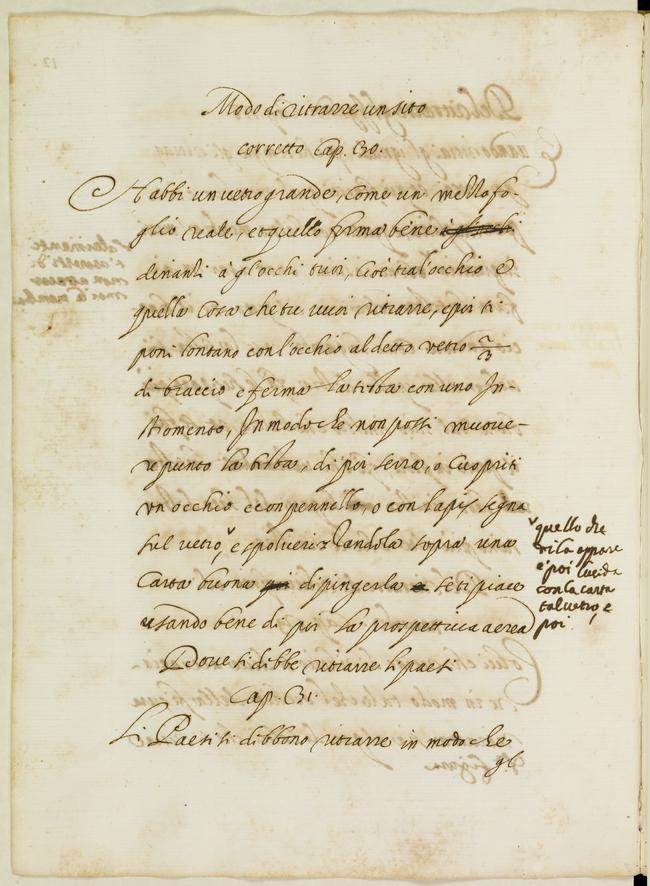 Modo di ritrarre un sito
corretto Cap. 30.
Habbi un vetro grande, come un mezzo fo-
glio reale, et quello ferma bene
dinanzi à gl'occhi tuoi, cioè tra l'occhio e
quella cosa che tu vuoi ritrarre, e poi ti
poni lontano con l'occhio al detto vetro 2/3
di braccio e ferma la testa con uno In-
stromento, In modo che non possi muove-
re punto la testa, di poi serra, o cuopriti
un occhio e con pennello, o con lapis segna
sul vetro, e spolverizzandola sopra una
Carta buona di pingerla se ti piace
usando bene di poi la prospettiva aerea
quello che
di la appare
e poi lucida
con la carta
tal vetro, e
poi.
Dove ti dibbe ritrarre li paesi
Cap. 31.
Li Paesi ti dibbono ritrarre in modo che
gl'